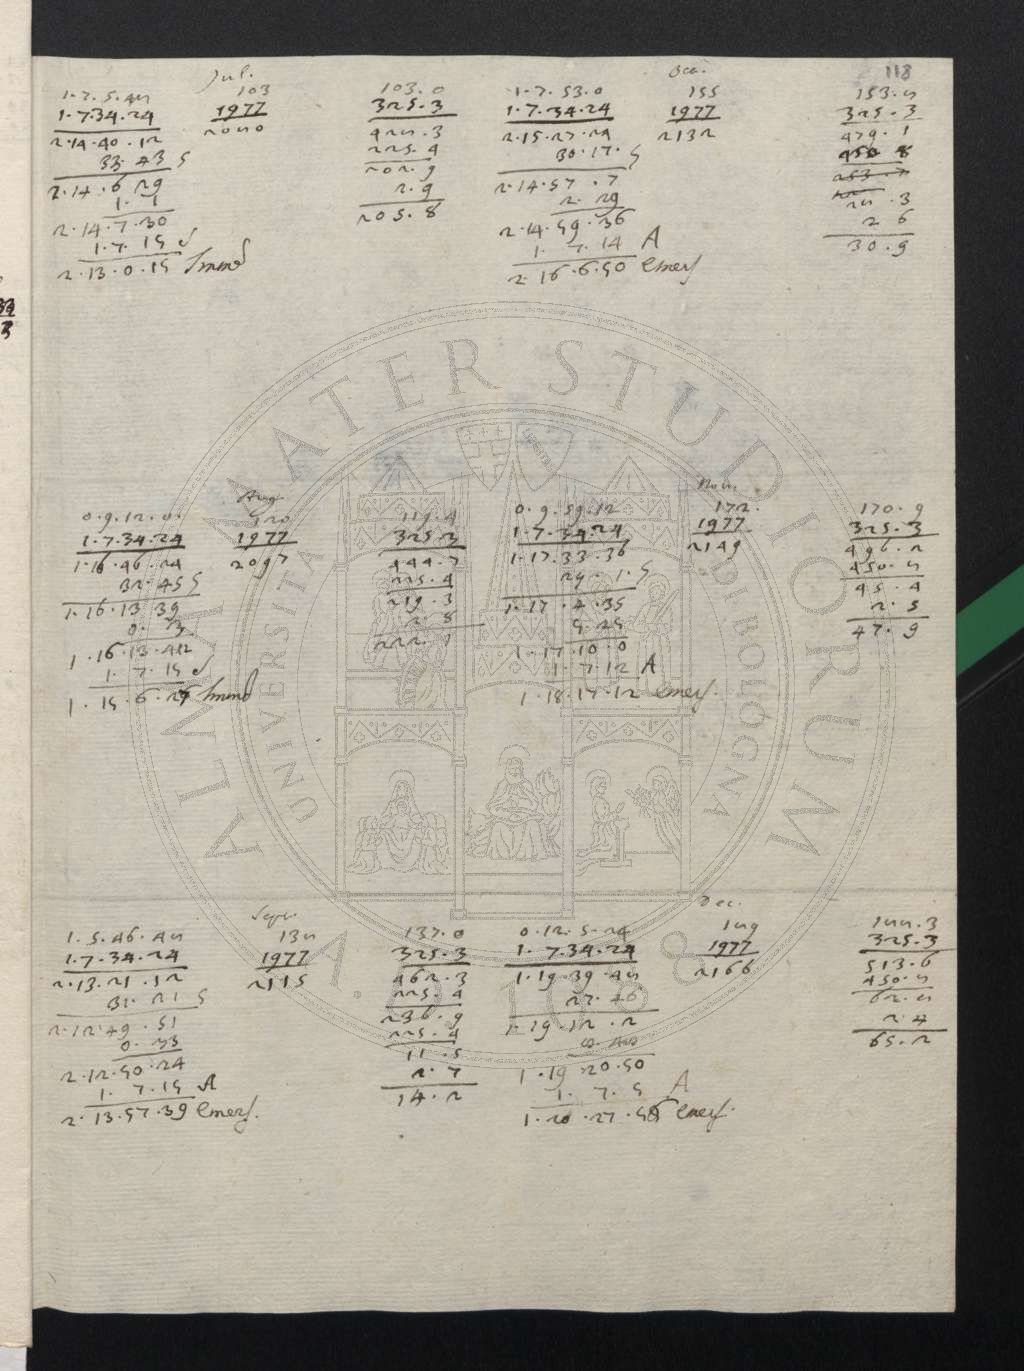 118
Jul.
1.7.5.48
1.7.34.24
2.14.40.12
33.43 S
2.14.6.29
1.1
2.14.7.30
1.7.15 S
2.13.0.15 Immers
103
1977
2080
103.0
325.3
428.3
225.4
202.9
2.9
205.8
Oct.
1.7.53.0
1.7.34.24
2.15.27.24
30.17. S
2.14.57.7
2.29
2.14.59.36
1.7.14 A
2.16.6.50 emers
155
1977
2132
153.8
325.3
479.1
450.8
253.7
28.3
2 6
30.9
Aug.
0.9.12.0.
1.7.34.24
1.16.46.24
32.45 S
1.16.13 39
0.3
1.16.13.42
1.7.15 S
1.15.6.27 Immers
120
1977
2097
119.4
325.3
444.7
225.4
219.3
2.8
222.1
Nov.
0.9.59.12
1.7.34.24
1.17.33.36
29.1.S
1.17.4.35
5.25
1.17.10.0
1.7.12 A
1.18.17.12 emers.
172.
1977
2149
170.9
325.3
496.2
450.8
45.4
2.5
47.9
Sept.
1.5.46.48
1.7.34.24
2.13.21.12
31.21 S
2.12.49.51
0.33
2.12.50.24
1.7.15 A
2.13.57.39 emers.
138
1977
2115
137.0
325.3
462.3
225.4
236.9
225.4
11.5
2.7
14.2
Dec.
0.12.5.24
1.7.34.24
1.19.39.48
27.46
1.19.12.2
8.48
1.19.20.50
1.7.5 A
1.20.27.55 emers.
189
1977
2166
188.3
325.3
513.6
450.8
62.8
2.4
65.2
ALMA MATER STUDIORUM
UNIVERSITÀ DI BOLOGNA
A.D. 1088